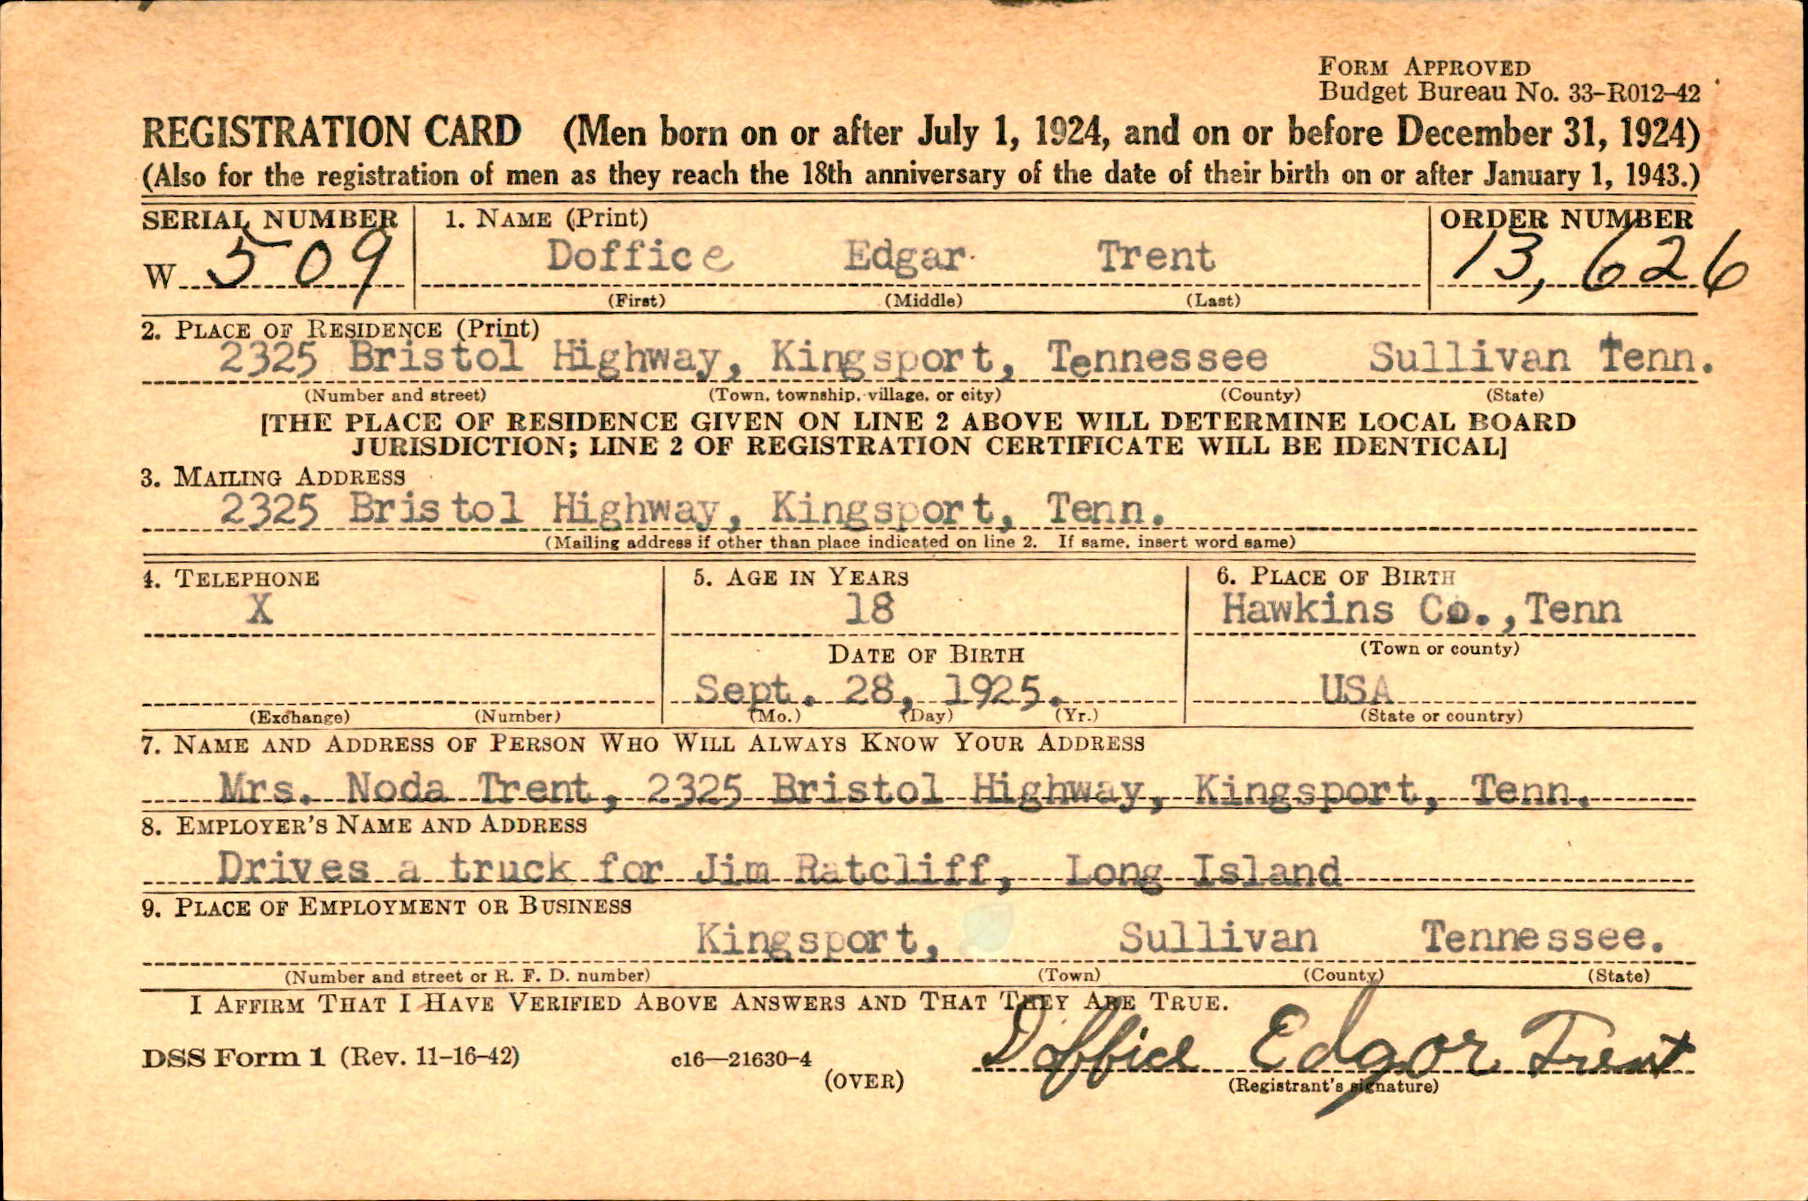 FORM APPROVED
Budget Bureau No. 33-R012-42
REGISTRATION CARD (Men born on or after July 1, 1924, and on or before December 31, 1924)
(Also for the registration of men as they reach the 18th anniversary of the date of their birth on or after January 1, 1943.)
SERIAL NUMBER 1. NAME (Print) ORDER NUMBER
W 509 Doffice Edgar Trent 13,626
(First) (Middle) (Last)
2. PLACE OF RESIDENCE (Print)
2325 Bristol Highway, Kingsport, Tennessee Sullivan Tenn.
(Number and street) (Town, township, village, or city) (County) (State)
[THE PLACE OF RESIDENCE GIVEN ON LINE 2 ABOVE WILL DETERMINE LOCAL BOARD
JURISDICTION; LINE 2 OF REGISTRATION CERTIFICATE WILL BE IDENTICAL]
3. MAILING ADDRESS
2325 Bristol Highway, Kingsport, Tenn.
(Mailing address if other than place indicated on line 2. If same, insert word same)
4. TELEPHONE 5. AGE IN YEARS 6. PLACE OF BIRTH
X 18 Hawkins Co.,Tenn
DATE OF BIRTH (Town or county)
Sept. 28, 1925. USA
(Exchange) (Number) (Mo.) (Day) (Yr.) (State or country)
7. NAME AND ADDRESS OF PERSON WHO WILL ALWAYS KNOW YOUR ADDRESS
Mrs. Noda Trent, 2325 Bristol Highway, Kingsport, Tenn.
8. EMPLOYER'S NAME AND ADDRESS
Drives a truck for Jim Ratcliff, Long Island
9. PLACE OF EMPLOYMENT OR BUSINESS
Kingsport, Sullivan Tennessee.
(Number and street or R. F. D. number) (Town) (County) (State)
I AFFIRM THAT I HAVE VERIFIED ABOVE ANSWERS AND THAT THEY ARE TRUE.
DSS Form 1 (Rev. 11-16-42) c16—21630-4 Doffice Edgar Trent
(OVER) (Registrant's signature)